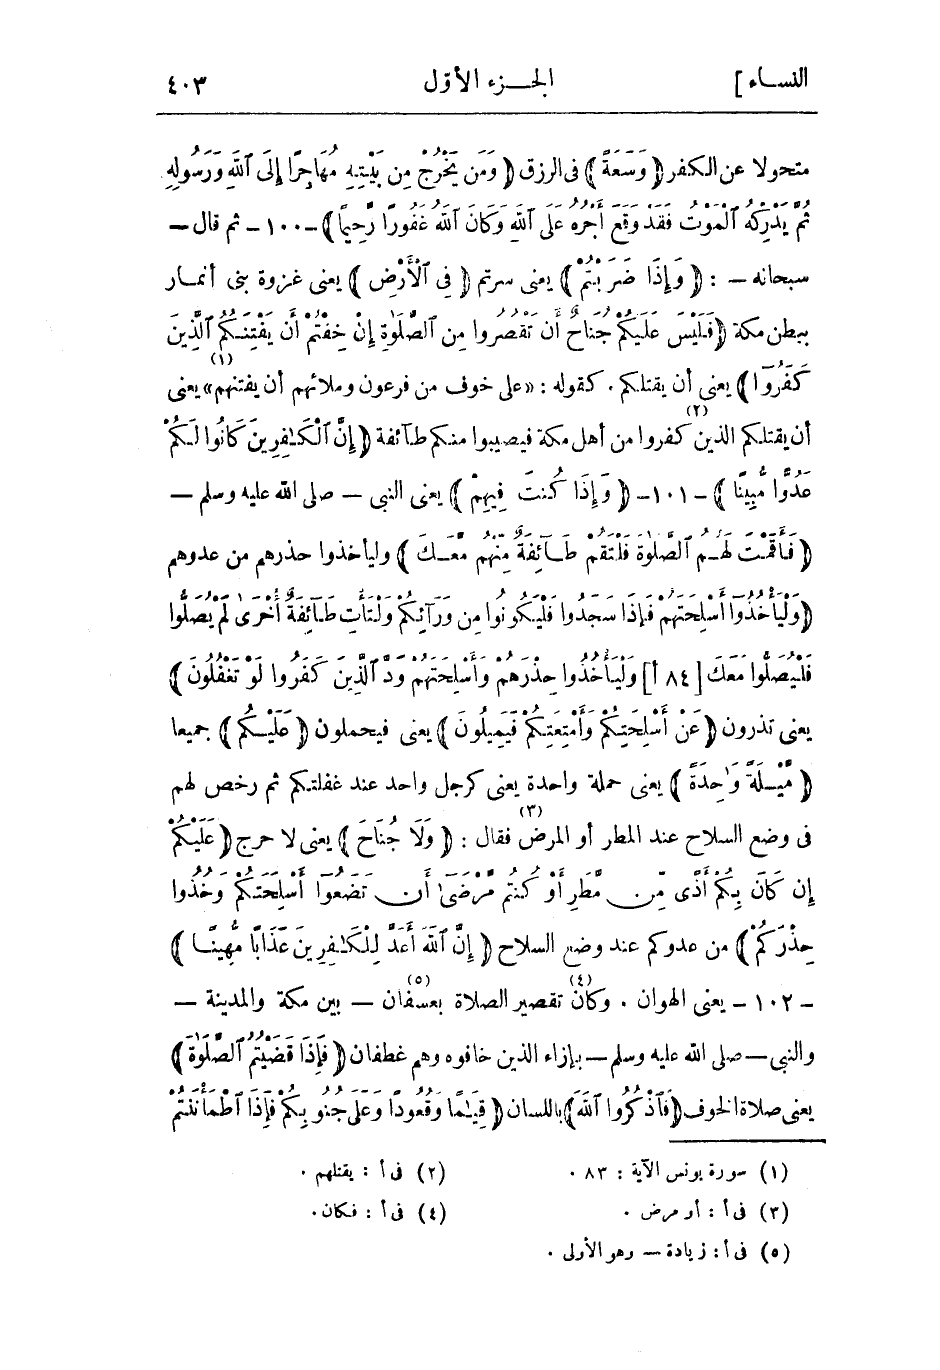 النساء ]
الجـزء الأوّل
٤٠٣
متحولا عن الكفر ﴿ وَسَعَةً ﴾ فى الرزق ﴿ وَمَن يَخْرُجْ مِن بَيْتِهِ مُهَاجِرًا إِلَى ٱللَّهِ وَرَسُولِهِ
ثُمَّ يُدْرِكْهُ ٱلْمَوْتُ فَقَدْ وَقَعَ أَجْرُهُ عَلَى ٱللَّهِ وَكَانَ ٱللَّهُ غَفُورًا رَّحِيمًا ﴾ -١٠٠- ثم قال —
سبحانه — : ﴿ وَإِذَا ضَرَبْتُمْ ﴾ يعنى سرتم ﴿ فِى ٱلْأَرْضِ ﴾ يعنى غزوة بنى أنمار
ببطن مكة ﴿ فَلَيْسَ عَلَيْكُمْ جُنَاحٌ أَن تَقْصُرُوا مِنَ ٱلصَّلَوٰةِ إِنْ خِفْتُمْ أَن يَفْتِنَكُمُ ٱلَّذِينَ
كَفَرُوٓا ﴾ يعنى أن يقتلكم . كقوله : «على خوف من فرعون وملائهم أن يفتنهم(١)» يعنى
أن يقتلكم الذين(٢) كفروا من أهل مكة فيصيبوا منكم طآئفة ﴿ إِنَّ ٱلْكَـٰفِرِينَ كَانُوا لَكُمْ
عَدُوًّا مُّبِينًا ﴾ -١٠١- ﴿ وَإِذَا كُنتَ فِيهِمْ ﴾ يعنى النبى — صلى الله عليه وسلم —
﴿ فَأَقَمْتَ لَهُمُ ٱلصَّلَوٰةَ فَلْتَقُمْ طَآئِفَةٌ مِّنْهُم مَّعَكَ ﴾ وليأخذوا حذرهم من عدوهم
﴿ وَلْيَأْخُذُوٓا أَسْلِحَتَهُمْ فَإِذَا سَجَدُوا فَلْيَكُونُوا مِن وَرَآئِكُمْ وَلْتَأْتِ طَآئِفَةٌ أُخْرَىٰ لَمْ يُصَلُّوا
فَلْيُصَلُّوا مَعَكَ [ ٨٤ أ ] وَلْيَأْخُذُوا حِذْرَهُمْ وَأَسْلِحَتَهُمْ وَدَّ ٱلَّذِينَ كَفَرُوا لَوْ تَغْفُلُونَ ﴾
يعنى تذرون ﴿ عَنْ أَسْلِحَتِكُمْ وَأَمْتِعَتِكُمْ فَيَمِيلُونَ ﴾ يعنى فيحملون ﴿ عَلَيْكُم ﴾ جميعا
﴿ مَّيْلَةً وَٰحِدَةً ﴾ يعنى حملة واحدة يعنى كرجل واحد عند غفلتكم ثم رخص لهم
فى وضع السلاح عند المطر أو المرض(٣) فقال : ﴿ وَلَا جُنَاحَ ﴾ يعنى لا حرج ﴿ عَلَيْكُمْ
إِن كَانَ بِكُمْ أَذًى مِّن مَّطَرٍ أَوْ كُنتُم مَّرْضَىٰٓ أَن تَضَعُوٓا أَسْلِحَتَكُمْ وَخُذُوا
حِذْرَكُمْ ﴾ من عدوكم عند وضع السلاح ﴿ إِنَّ ٱللَّهَ أَعَدَّ لِلْكَـٰفِرِينَ عَذَابًا مُّهِينًا ﴾
- ١٠٢ - يعنى الهوان . وكان(٤) تقصير الصلاة بعسفان(٥) — بين مكة والمدينة —
والنبى — صلى الله عليه وسلم — بإزاء الذين خافوه وهم غطفان ﴿ فَإِذَا قَضَيْتُمُ ٱلصَّلَوٰةَ ﴾
يعنى صلاة الخوف ﴿ فَٱذْكُرُوا ٱللَّهَ ﴾ باللسان ﴿ قِيَـٰمًا وَقُعُودًا وَعَلَىٰ جُنُوبِكُمْ فَإِذَا ٱطْمَأْنَنتُمْ
(١) سورة يونس الآية : ٨٣ .
(٢) فى أ : يقتلهم .
(٣) فى أ : أو مرض .
(٤) فى أ : فكان .
(٥) فى أ : زيادة — وهو الأولى .